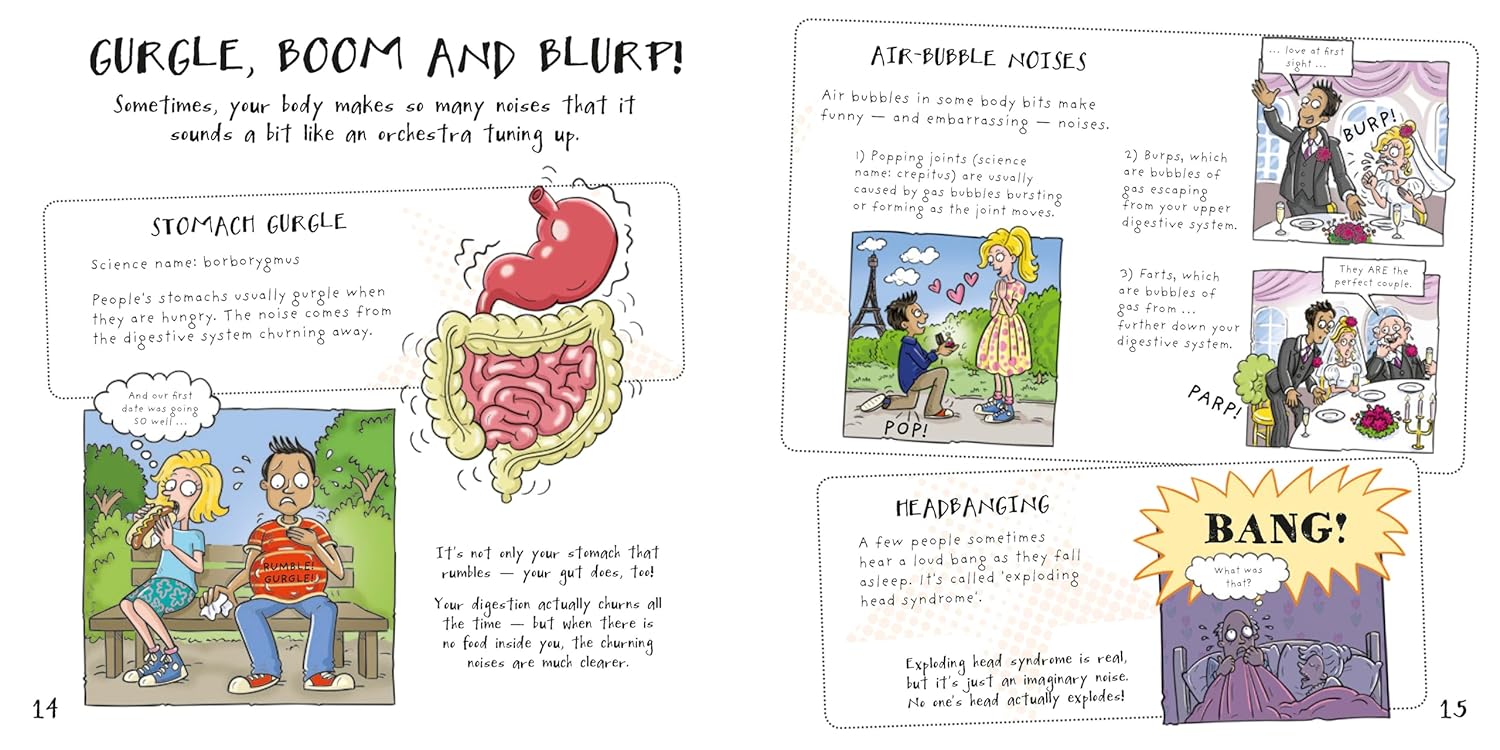 GURGLE, BOOM AND BLURP!
Sometimes, your body makes so many noises that it
sounds a bit like an orchestra tuning up.
STOMACH GURGLE
Science name: borborygmus
People's stomachs usually gurgle when
they are hungry. The noise comes from
the digestive system churning away.
And our first
date was going
SO well ...
RUMBLE!
GURGLE!
It's not only your stomach that
rumbles — your gut does, too!
Your digestion actually churns all
the time — but when there is
no food inside you, the churning
noises are much clearer.
14
AIR-BUBBLE NOISES
Air bubbles in some body bits make
funny — and embarrassing — noises.
1) Popping joints (science
name: crepitus) are usually
caused by gas bubbles bursting
or forming as the joint moves.
POP!
2) Burps, which
are bubbles of
gas escaping
from your upper
digestive system.
... love at first
sight ...
BURP!
3) Farts, which
are bubbles of
gas from ...
further down your
digestive system.
They ARE the
perfect couple.
PARP!
HEADBANGING
A few people sometimes
hear a loud bang as they fall
asleep. It's called 'exploding
head syndrome'.
BANG!
What was
that?
Exploding head syndrome is real,
but it's just an imaginary noise.
No one's head actually explodes!
15